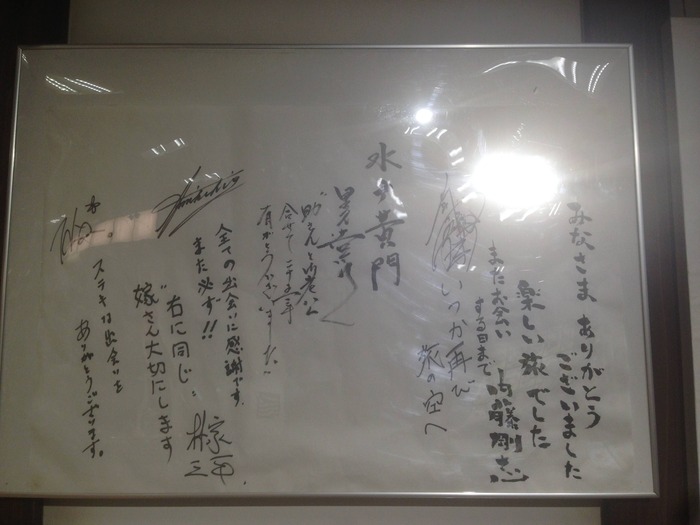 みなさま ありがとう
ございました
楽しい旅でした
またお会い
する日まで
内藤剛志
いつか再び
旅の空へ
水戸黄門
里見浩太朗
"助さんと御老公
合せて二十五年
有がとうございました"
全ての出会いに感謝です
また必ず!!
"右に同じ"
嫁さん大切にします
ステキな出会いを
ありがとうございます。